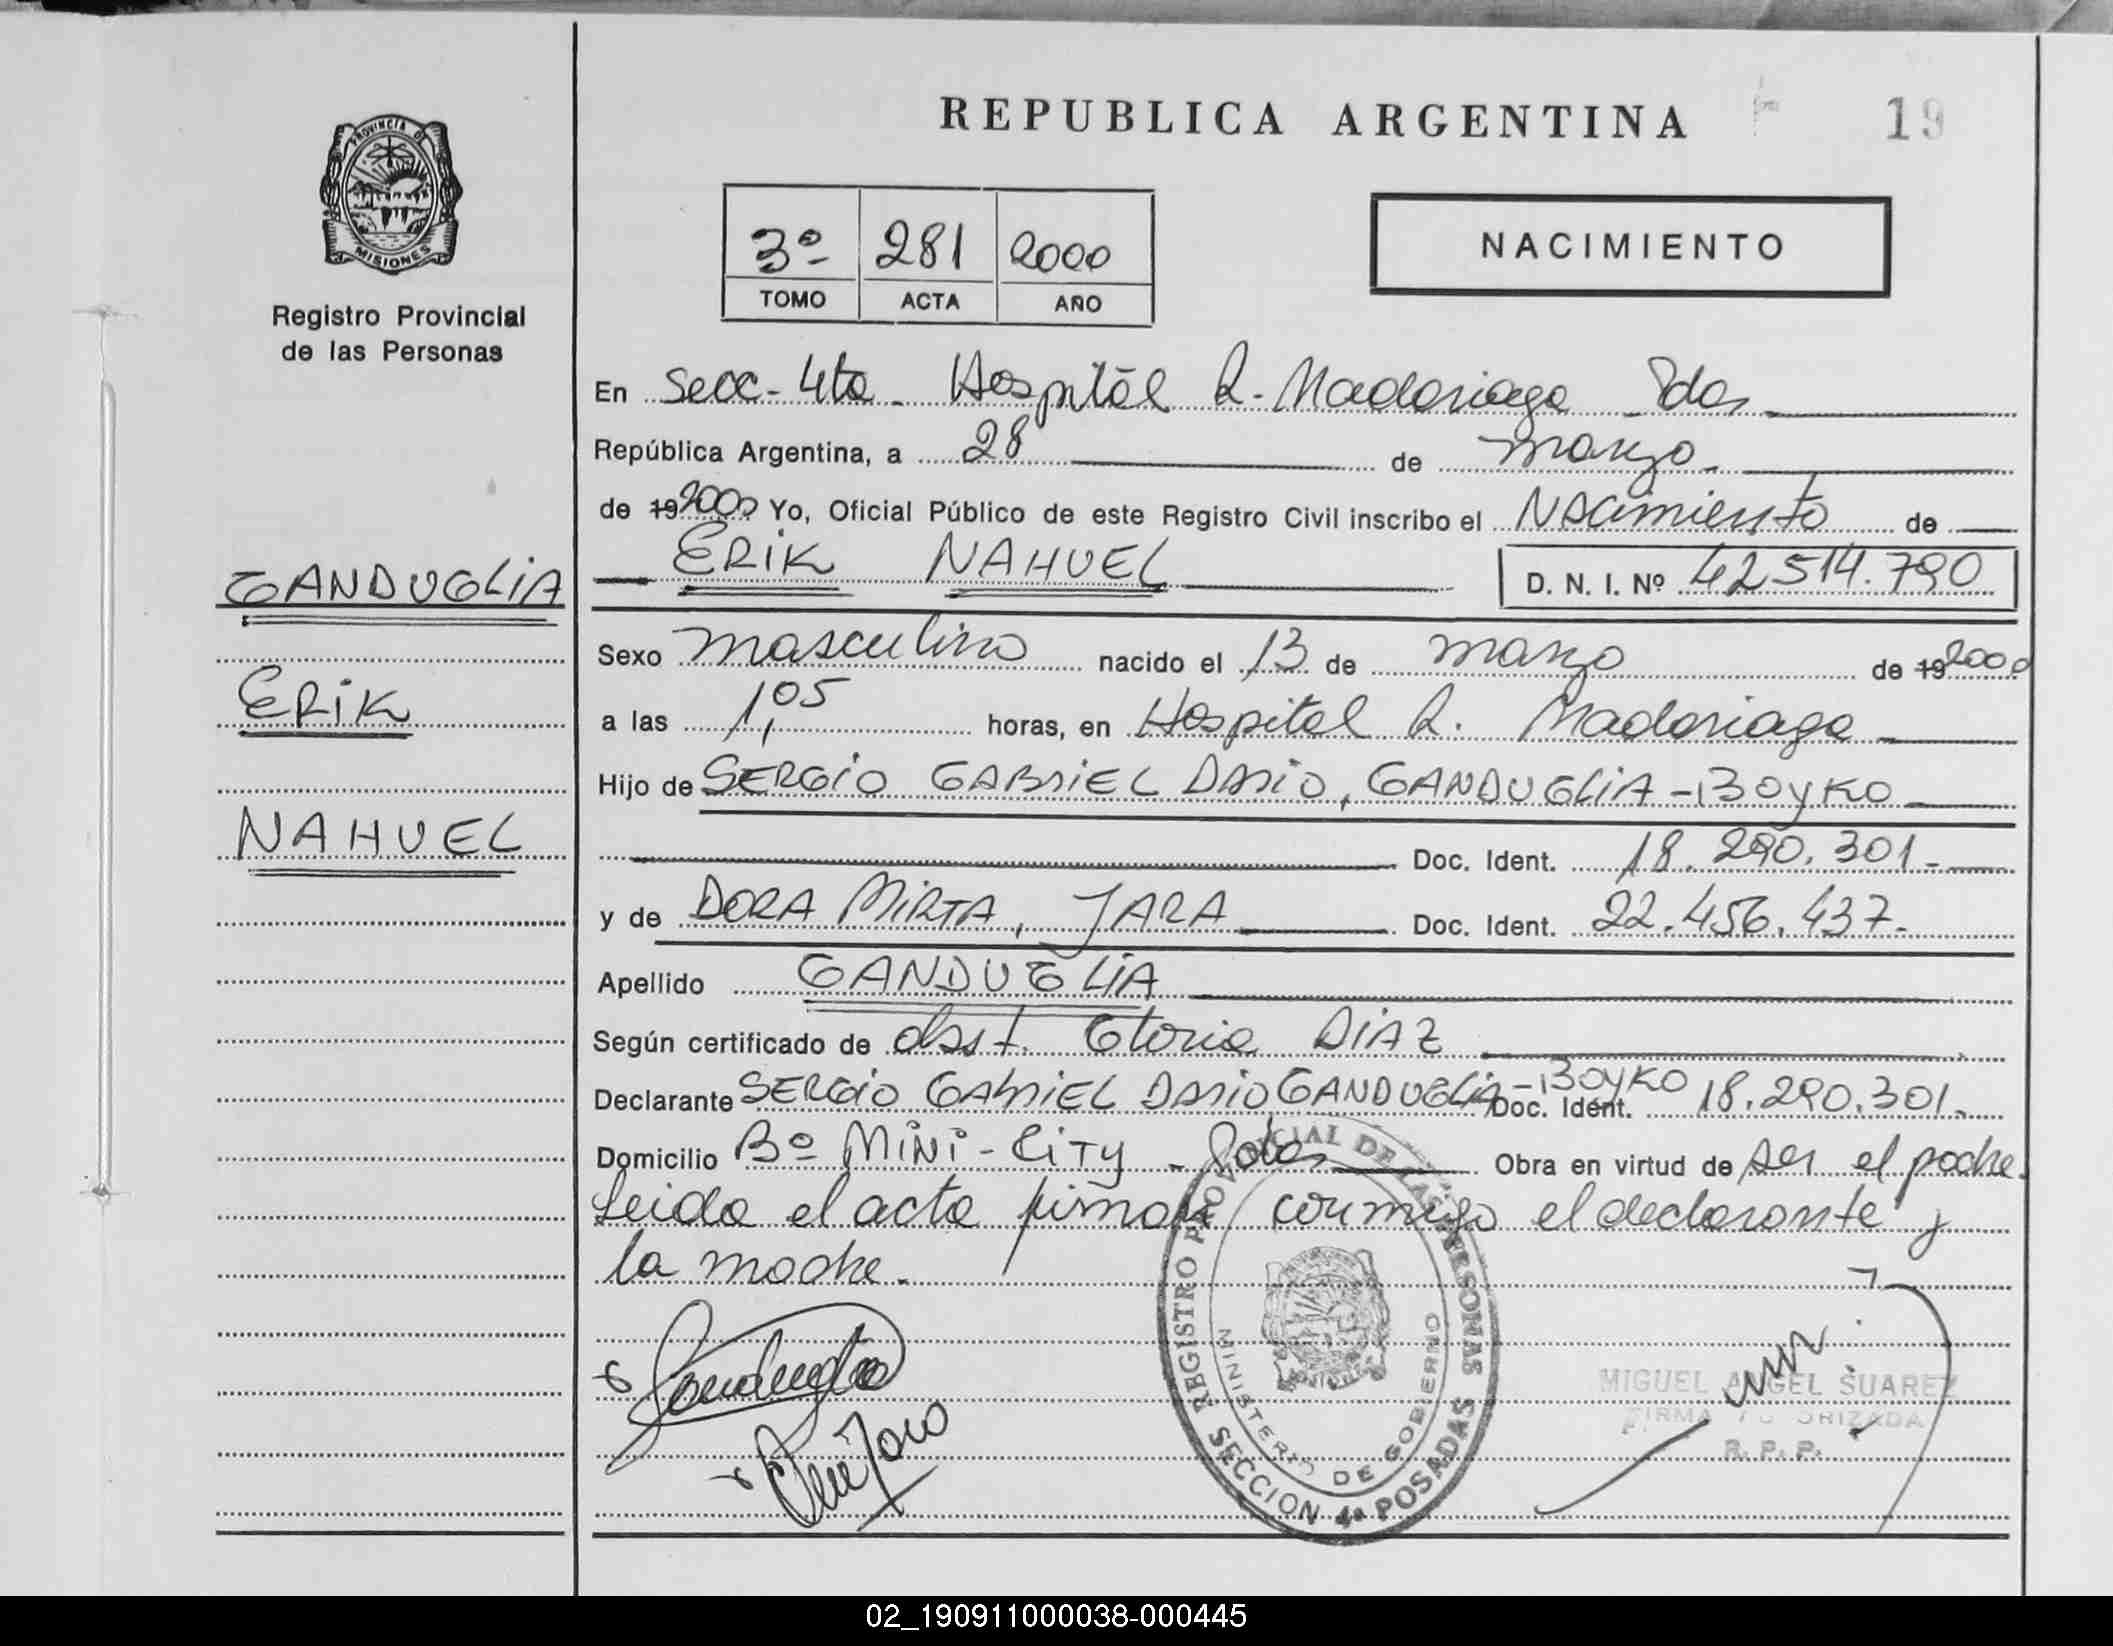 REPUBLICA ARGENTINA
19
PROVINCIA DE
MISIONES
Registro Provincial
de las Personas
3º 281 2000
TOMO ACTA AÑO
NACIMIENTO
En Secc- 4ta - Hospital R. Madariaga Pdas
República Argentina, a 28 de marzo
de 19 2000 Yo, Oficial Público de este Registro Civil inscribo el Nacimiento de
ERIK NAHUEL D. N. I. Nº 42514.790
GANDUGLIA
Sexo masculino nacido el 13 de marzo de 19 2000
ERIK
a las 1,05 horas, en Hospital R. Madariaga
Hijo de SERGIO GABRIEL DARIO, GANDUGLIA - BOYKO
NAHUEL
Doc. Ident. 18.290.301.-
y de DORA MIRTA, JARA Doc. Ident. 22.456.437.-
Apellido GANDUGLIA
Según certificado de obst. Gloria DIAZ
Declarante SERGIO GABRIEL DARIO GANDUGLIA - BOYKO Doc. Ident. 18.290.301.-
Domicilio Bº MINI - CITY - Pdas Obra en virtud de ser el padre.
Leida el acta firman conmigo el declarante y
la madre.
REGISTRO PROVINCIAL DE LAS PERSONAS
MINISTERIO DE GOBIERNO
SECCION 4ª POSADAS
MIGUEL ANGEL SUAREZ
FIRMA AUTORIZADA
R. P. P.
02_190911000038-000445